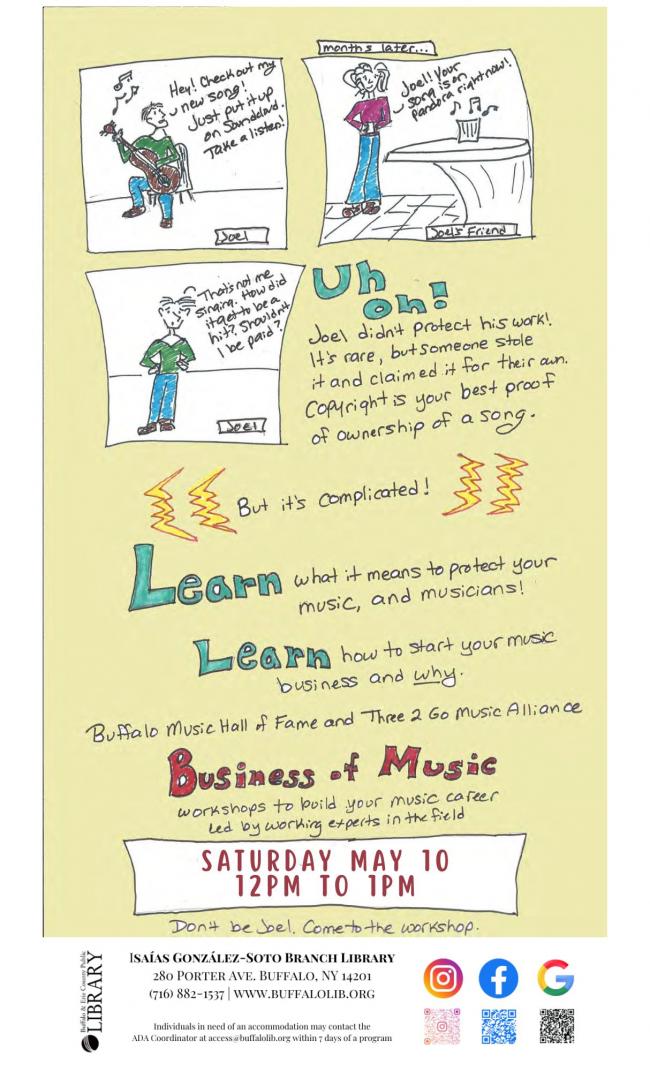 Hey! Check out my
new song!
Just put it up
on Soundcloud.
Take a listen!
Joel
months later...
Joel! Your
song is on
pandora right now!
Joel's Friend
That's not me
singing. How did
it get to be a
hit? Shouldn't
I be paid?
Joel
Uh
oh!
Joel didn't protect his work!
It's rare, but someone stole
it and claimed it for their own.
Copyright is your best proof
of ownership of a song.
But it's complicated!
Learn what it means to protect your
music, and musicians!
Learn how to start your music
business and why.
Buffalo Music Hall of Fame and Three 2 Go Music Alliance
Business of Music
workshops to build your music career
Led by working experts in the field
SATURDAY MAY 10
12PM TO 1PM
Don't be Joel. Come to the workshop.
Buffalo & Erie County Public
LIBRARY
ISAÍAS GONZÁLEZ-SOTO BRANCH LIBRARY
280 PORTER AVE. BUFFALO, NY 14201
(716) 882-1537 | WWW.BUFFALOLIB.ORG
Individuals in need of an accommodation may contact the
ADA Coordinator at access@buffalolib.org within 7 days of a program